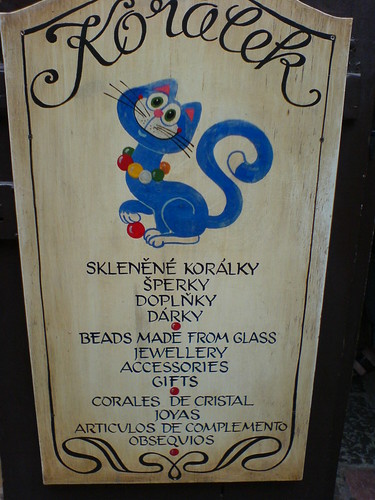 Korálek
SKLENĚNÉ KORÁLKY
ŠPERKY
DOPLŇKY
DÁRKY
BEADS MADE FROM GLASS
JEWELLERY
ACCESSORIES
GIFTS
CORALES DE CRISTAL
JOYAS
ARTICULOS DE COMPLEMENTO
OBSEQUIOS